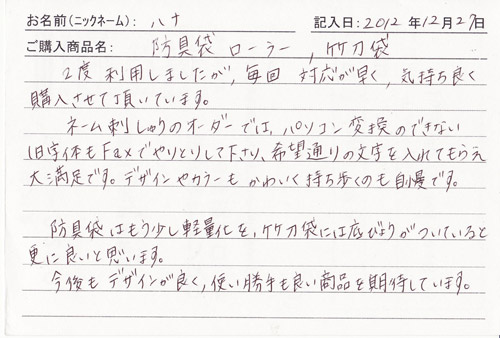 お名前(ニックネーム): ハナ 記入日: 2012 年 12 月 27 日
ご購入商品名: 防具袋 ローラー, 竹刀袋
2度 利用しましたが, 毎回 対応が早く, 気持ち良く
購入させて頂いています。
ネーム刺しゅうのオーダーでは, パソコン変換のできない
旧字体もFaxでやりとりして下さり、希望通りの文字を入れてもらえ
大満足です。デザインやカラーも かわいく持ち歩くのも自慢です。
防具袋はもう少し軽量化を, 竹刀袋には底びょうがついていると
更に良いと思います。
今後も デザインが良く, 使い勝手も良い商品を期待しています。